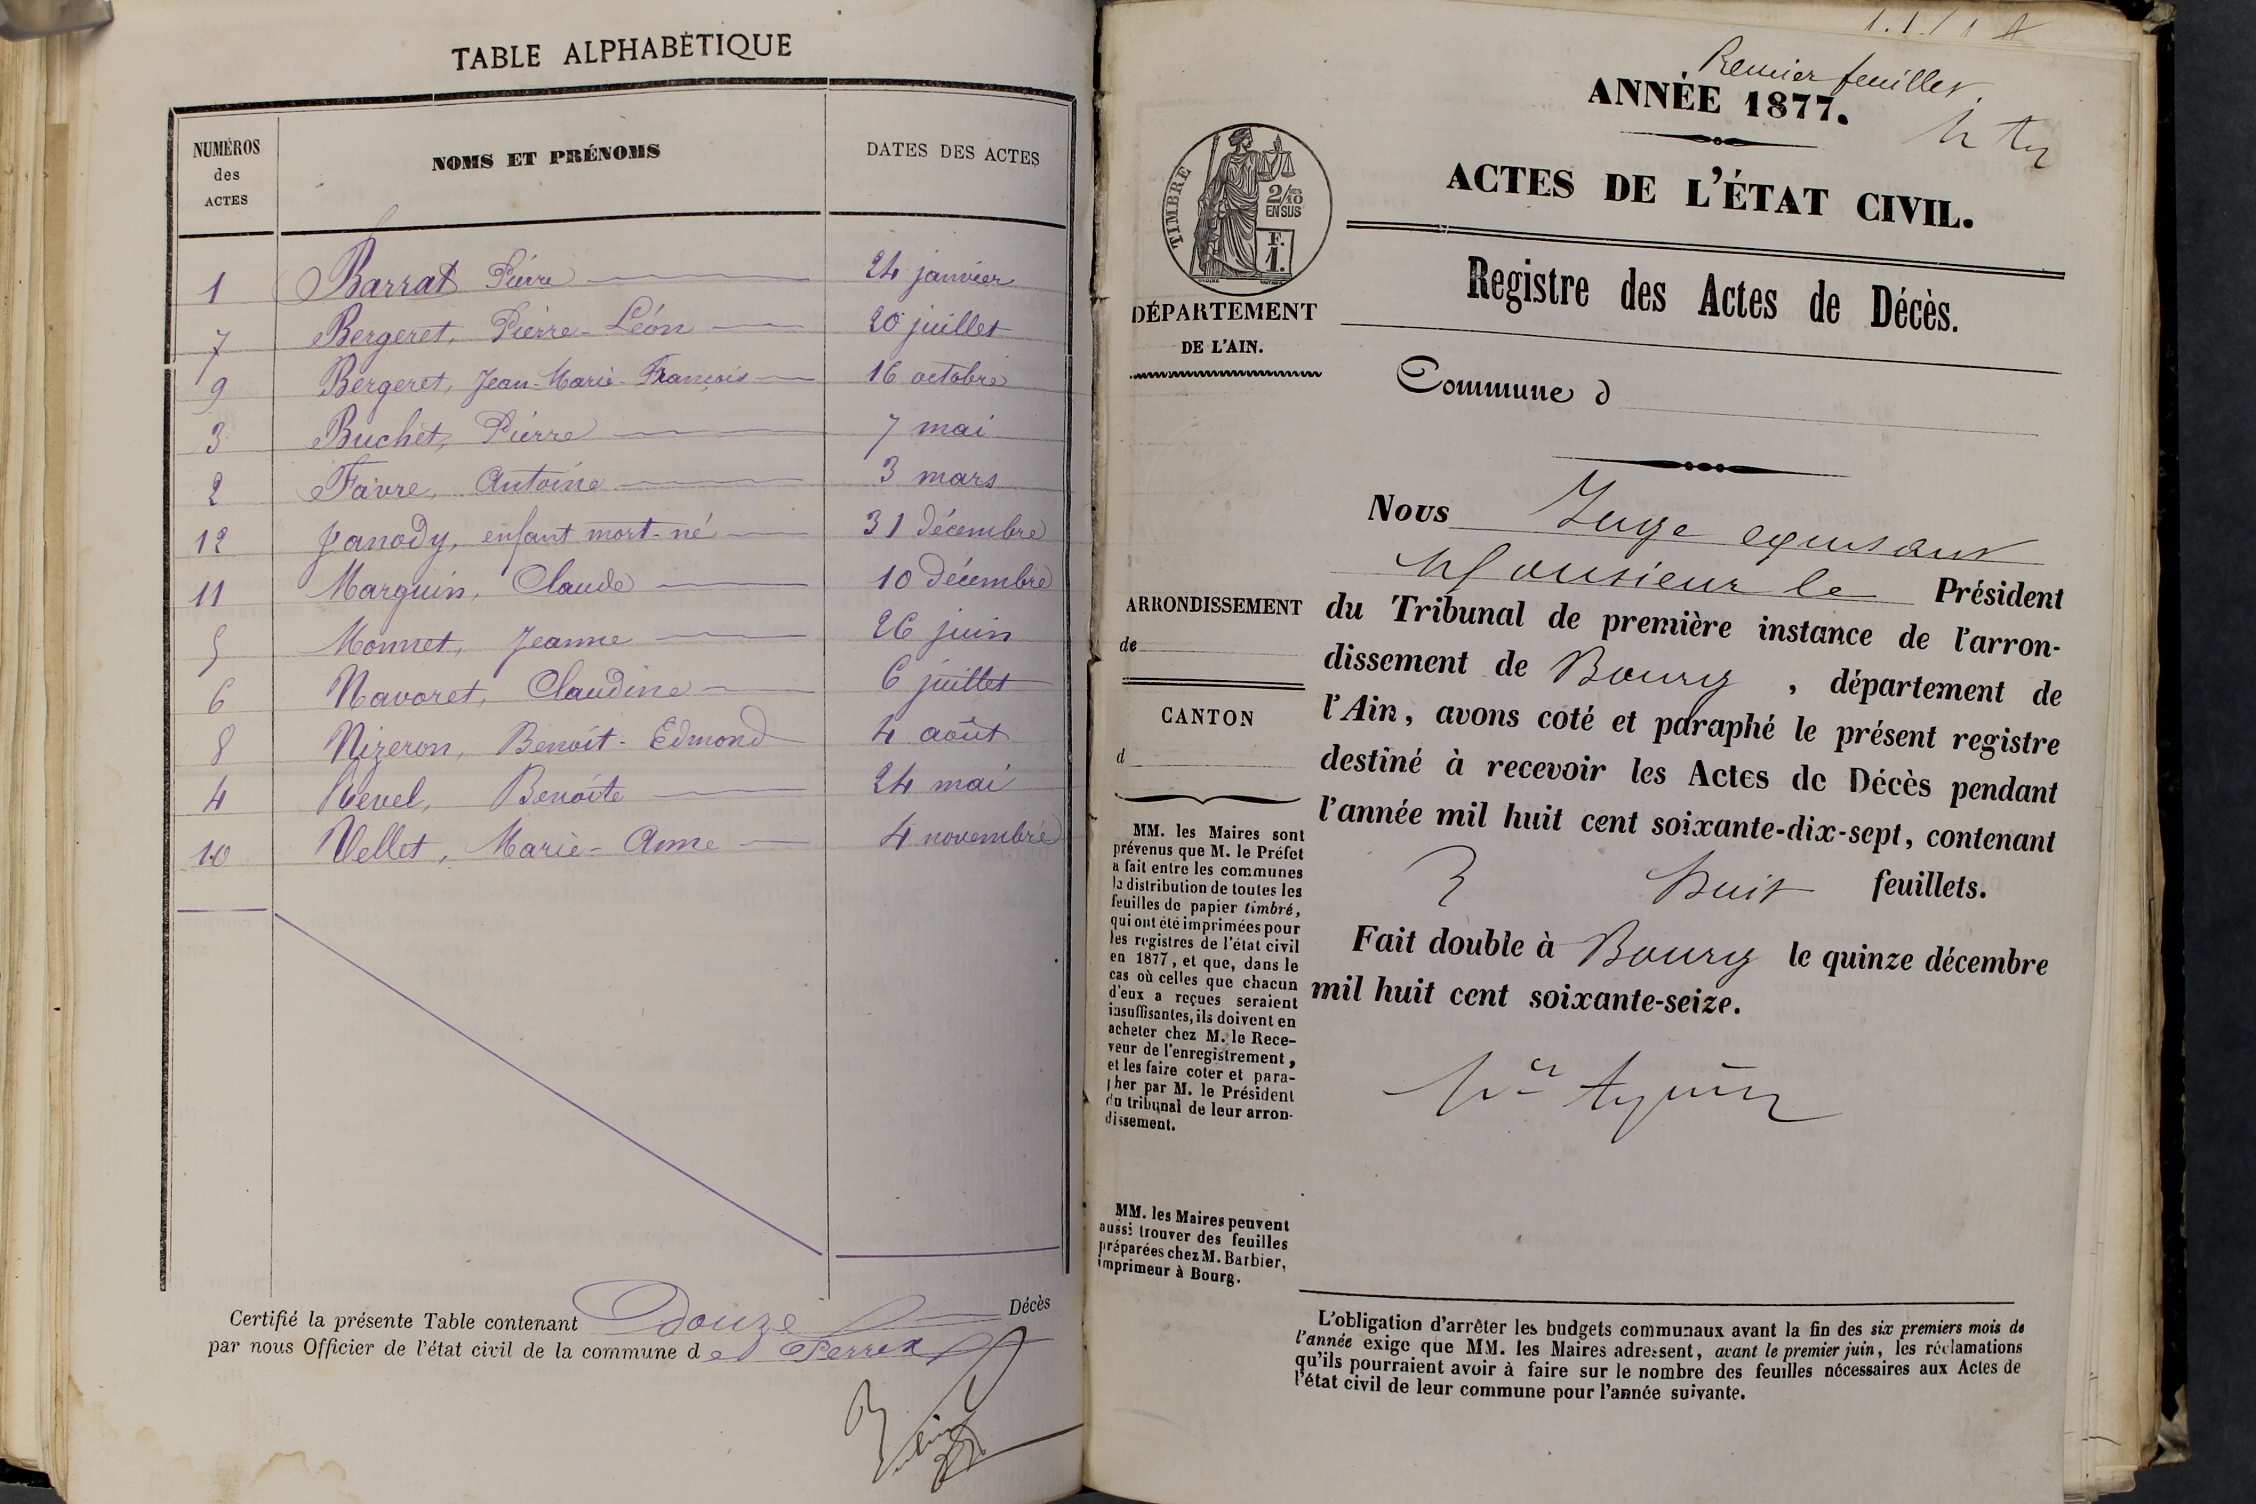 TABLE ALPHABÉTIQUE
NUMÉROS des ACTES NOMS ET PRÉNOMS DATES DES ACTES
1 Barrat Pierre 24 janvier
7 Bergeret, Pierre-Léon 20 juillet
9 Bergeret, Jean-Marie-François 16 octobre
3 Buchet, Pierre 7 mai
2 Favre, Antoine 3 mars
12 Janody, enfant mort-né 31 décembre
11 Marguin, Claude 10 décembre
5 Monnet, Jeanne 26 juin
6 Navoret, Claudine 6 juillet
8 Nizeron, Benoît-Edmond 4 août
4 Revel, Benoîte 24 mai
10 Vellet, Marie-Anne 4 novembre
Certifié la présente Table contenant Douze Décès
par nous Officier de l'état civil de la commune de Perrex
Premier feuillet.
ANNÉE 1877.
ACTES DE L'ÉTAT CIVIL.
TIMBRE
2/10
EN SUS
F.
1.
DÉPARTEMENT
DE L'AIN.
Registre des Actes de Décès.
Commune d
Nous Juge
Monsieur le Président
du Tribunal de première instance de l'arron-
dissement de Bourg, département de
l'Ain, avons coté et paraphé le présent registre
destiné à recevoir les Actes de Décès pendant
l'année mil huit cent soixante-dix-sept, contenant
huit feuillets.
Fait double à Bourg le quinze décembre
mil huit cent soixante-seize.
ARRONDISSEMENT
de
CANTON
d
MM. les Maires sont
prévenus que M. le Préfet
a fait entre les communes
la distribution de toutes les
feuilles de papier timbré,
qui ont été imprimées pour
les registres de l'état civil
en 1877, et que, dans le
cas où celles que chacun
d'eux a reçues seraient
insuffisantes, ils doivent en
acheter chez M. le Rece-
veur de l'enregistrement,
et les faire coter et para-
pher par M. le Président
du tribunal de leur arron-
dissement.
MM. les Maires peuvent
aussi trouver des feuilles
préparées chez M. Barbier,
imprimeur à Bourg.
L'obligation d'arrêter les budgets communaux avant la fin des six premiers mois de
l'année exige que MM. les Maires adressent, avant le premier juin, les réclamations
qu'ils pourraient avoir à faire sur le nombre des feuilles nécessaires aux Actes de
l'état civil de leur commune pour l'année suivante.